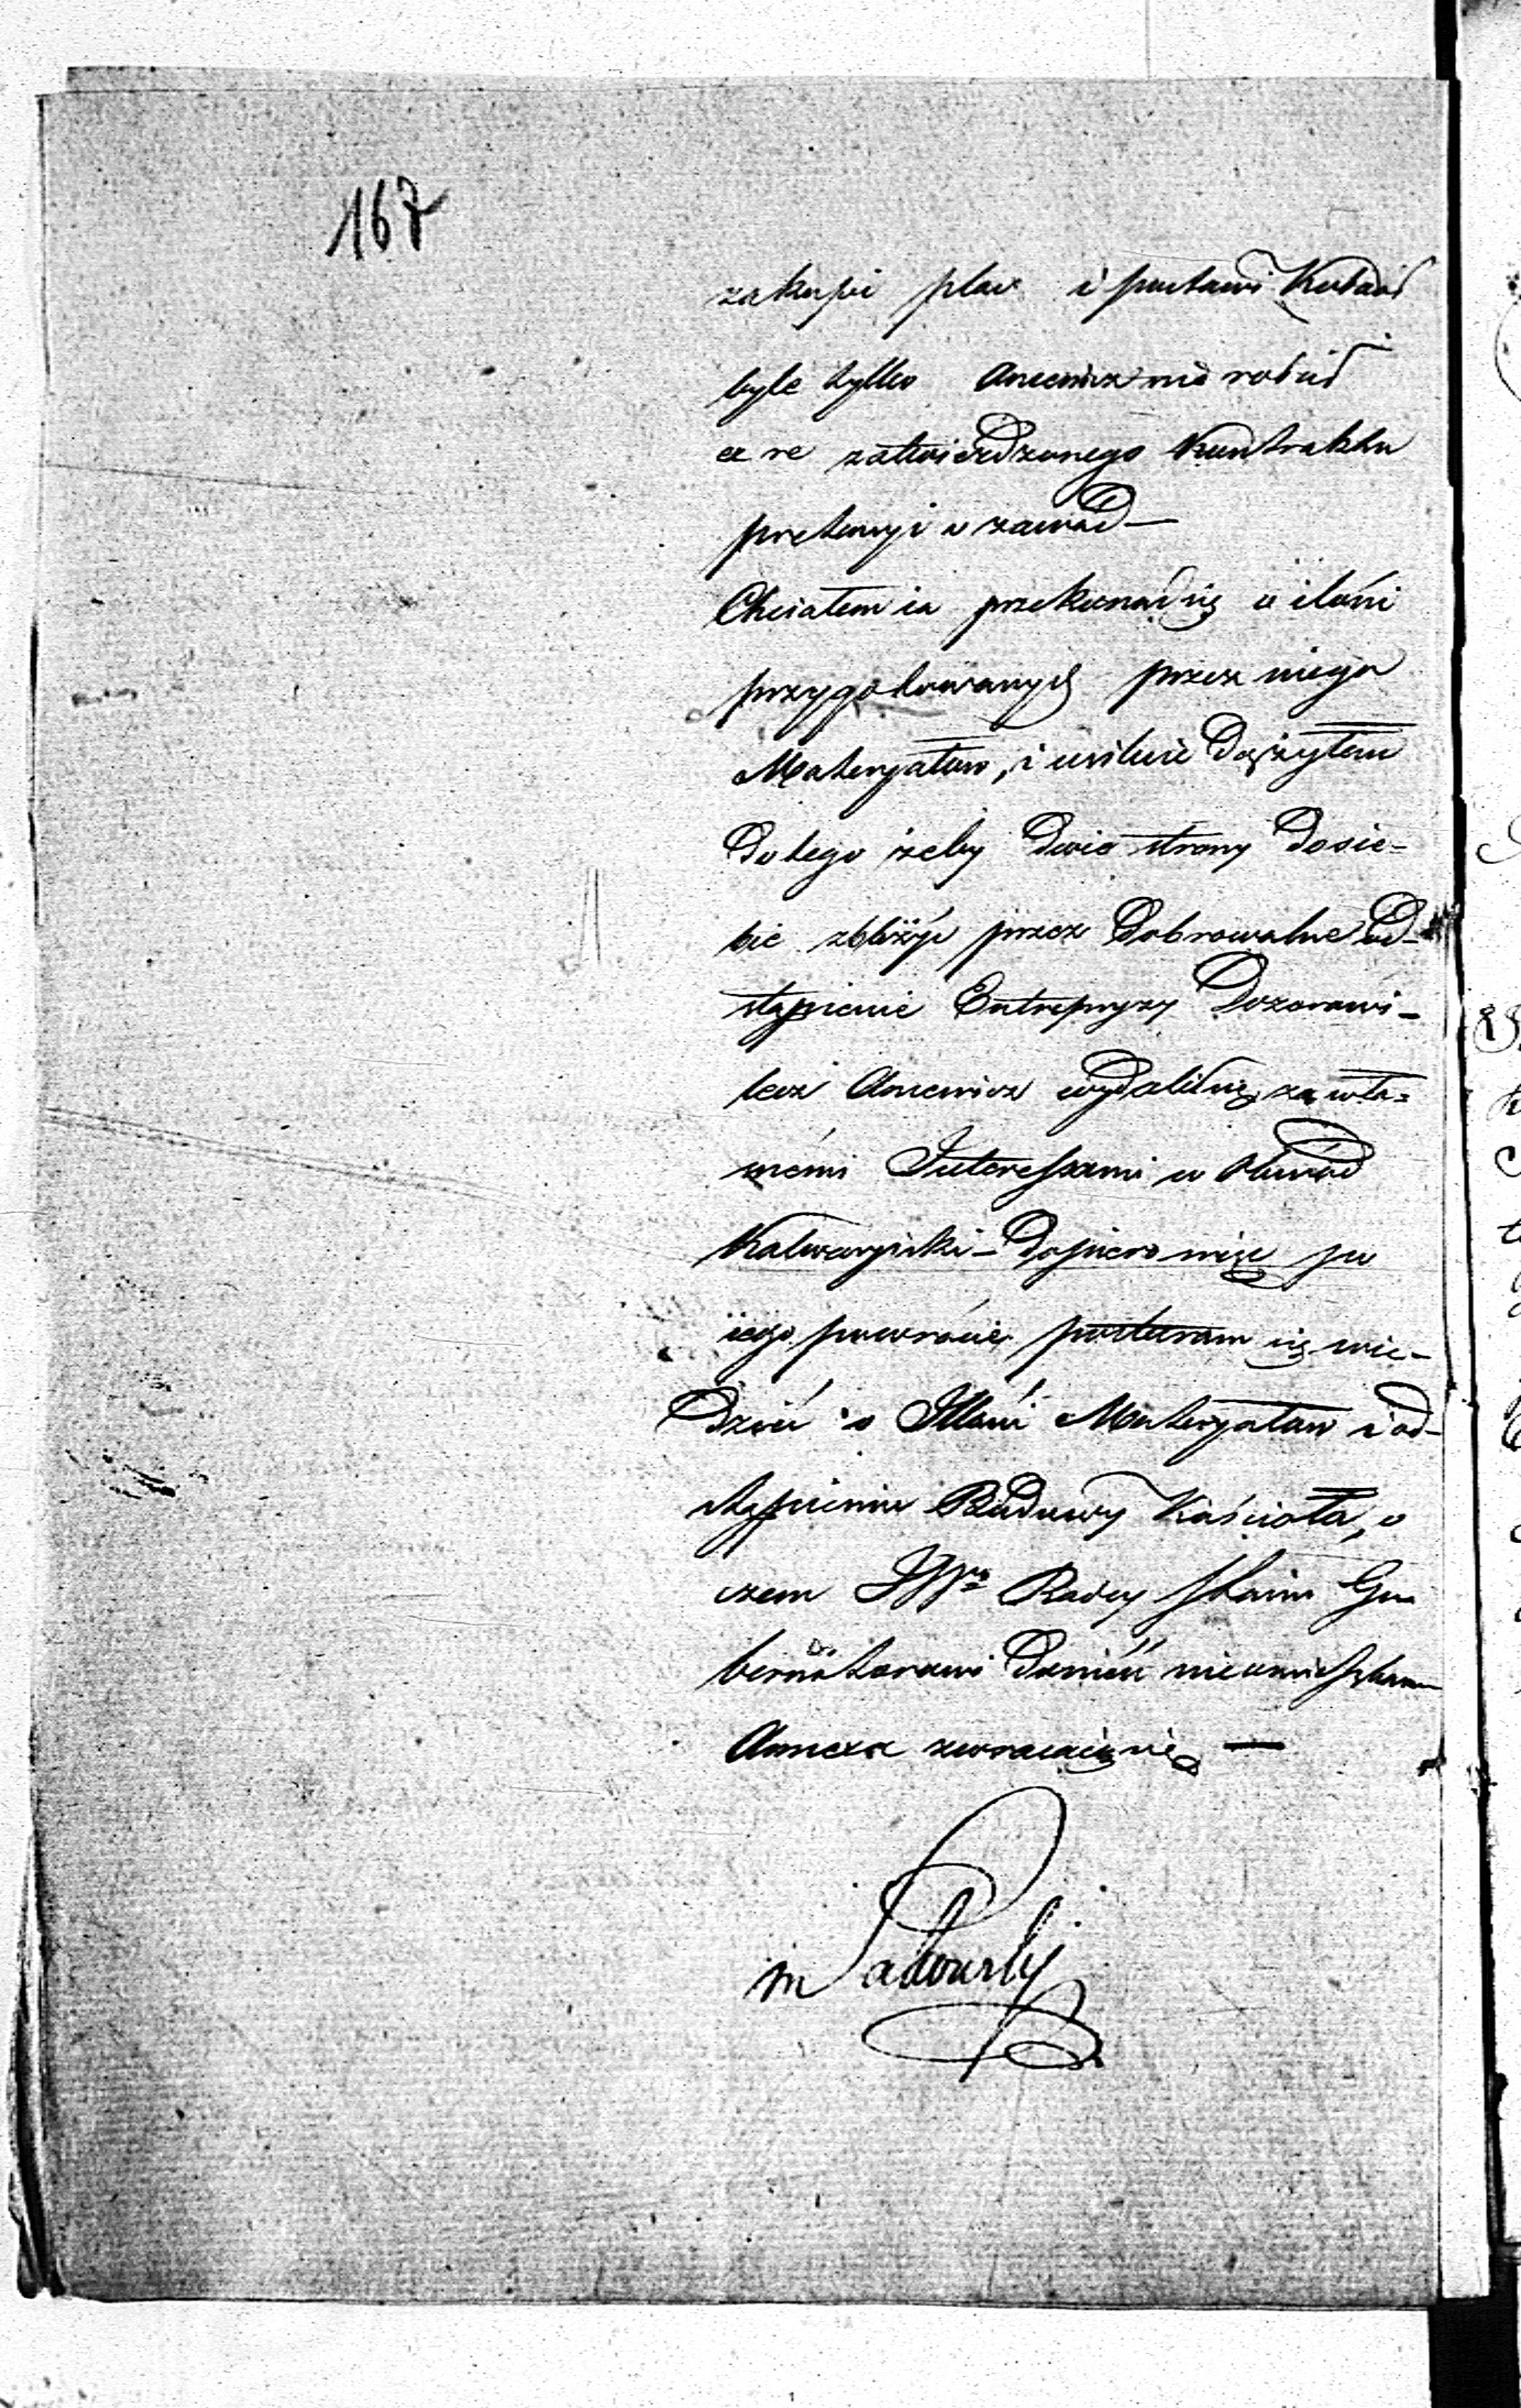 167
zakupi plac i postawi Kościół
byle tylko Ancewicz nie robił
ex re zatwierdzonego Kontraktu
pretensyi w zawod —
Chciałem ia przekonać się o ilości
przygotowanych przez niego
Materyałów, i usilnie dążyłem
do tego żeby dwie strony do sie=
bie zbliżyć przez dobrowolne od-
stąpienie Entrepryzy Dozorowi —
lecz Ancewicz wydalił się za wła=
snemi Interessami w Obwód
Kalwaryiski — dopiero więc po
iego powrócie postaram się wie-
dzieć o Ilości Materyałów i od-
stąpieniu Budowy Kościoła, o
czem JW Radcy Stanu Gu
bernatorowi donieść nieomieszkam
Annexa zwracaią się —